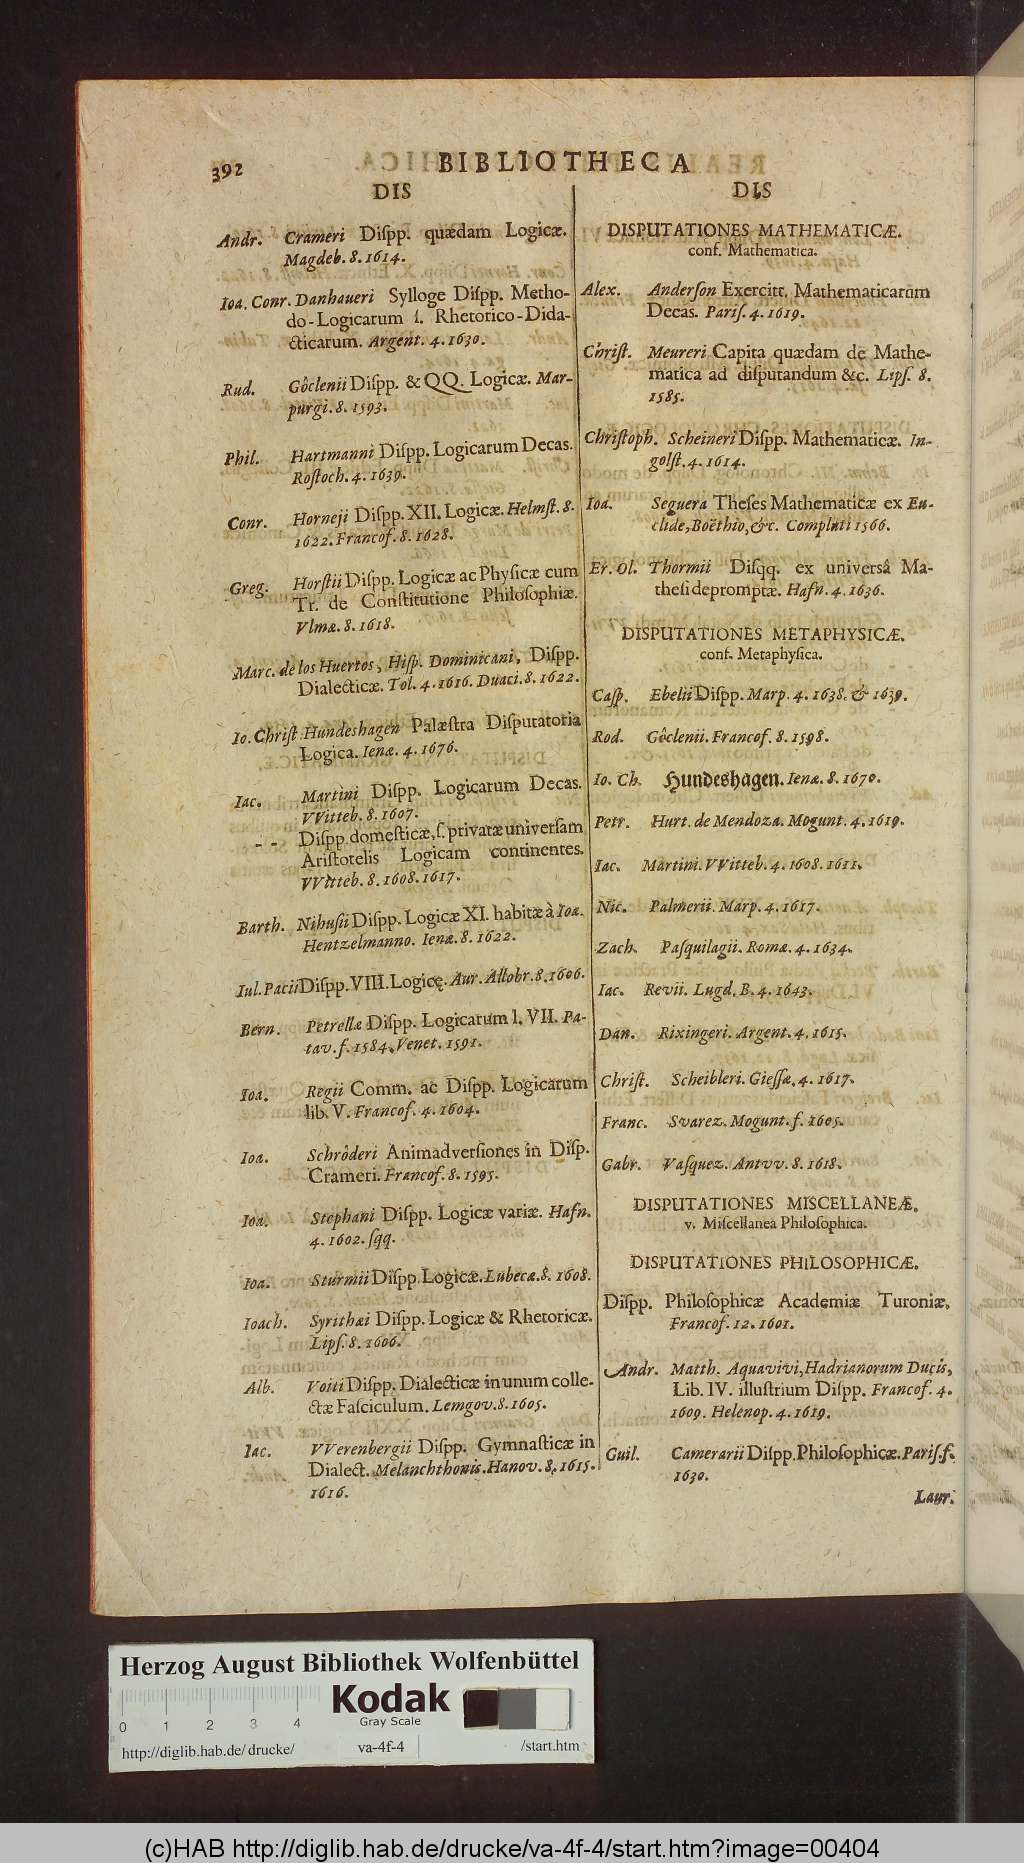 392
BIBLIOTHECA
DIS
Andr. Crameri Diſpp. quædam Logicæ.
Magdeb. 8. 1614.
Ioa. Conr. Danhaueri Sylloge Diſpp. Metho-
do-Logicarum ſ. Rhetorico-Dida-
cticarum. Argent. 4. 1630.
Rud. Gôclenii Diſpp. & QQ. Logicæ. Mar-
purgi. 8. 1593.
Phil. Hartmanni Diſpp. Logicarum Decas.
Roſtoch. 4. 1639.
Conr. Horneji Diſpp. XII. Logicæ. Helmſt. 8.
1622. Francof. 8. 1628.
Greg. Horſtii Diſpp. Logicæ ac Phyſicæ cum
Tr. de Conſtitutione Philoſophiæ.
Vlmæ. 8. 1618.
Marc. de los Huertos, Hiſp. Dominicani, Diſpp.
Dialecticæ. Tol. 4. 1616. Duaci. 8. 1622.
Io. Chriſt. Hundeshagen Palæſtra Diſputatoria
Logica. Ienæ. 4. 1676.
Iac. Martini Diſpp. Logicarum Decas.
VVitteb. 8. 1607.
- - Diſpp. domeſticæ, ſ. privatæ univerſam
Ariſtotelis Logicam continentes.
VVitteb. 8. 1608. 1617.
Barth. Nihuſii Diſpp. Logicæ XI. habitæ à Ioa.
Hentzelmanno. Ienæ. 8. 1622.
Iul. Pacii Diſpp. VIII. Logicę. Aur. Allobr. 8. 1606.
Bern. Petrellæ Diſpp. Logicarum l. VII. Pa-
tav. f. 1584. Venet. 1591.
Ioa. Regii Comm. ac Diſpp. Logicarum
lib. V. Francof. 4. 1604.
Ioa. Schrôderi Animadverſiones in Diſp.
Crameri. Francof. 8. 1595.
Ioa. Stephani Diſpp. Logicæ variæ. Hafn.
4. 1602. ſqq.
Ioa. Sturmii Diſpp. Logicæ. Lubecæ. 8. 1608.
Ioach. Syrithæi Diſpp. Logicæ & Rhetoricæ.
Lipſ. 8. 1606.
Alb. Voiti Diſpp. Dialecticæ in unum colle-
ctæ Faſciculum. Lemgov. 8. 1605.
Iac. VVerenbergii Diſpp. Gymnaſticæ in
Dialect. Melanchthonis. Hanov. 8. 1615.
1616.
DIS
DISPUTATIONES MATHEMATICÆ.
conf. Mathematica.
Alex. Anderſon Exercitt. Mathematicarum
Decas. Pariſ. 4. 1619.
Chriſt. Meureri Capita quædam de Mathe-
matica ad diſputandum &c. Lipſ. 8.
1585.
Chriſtoph. Scheineri Diſpp. Mathematicæ. In-
golſt. 4. 1614.
Ioa. Seguera Theſes Mathematicæ ex Eu-
clide, Boëthio, &c. Compluti 1566.
Er. Ol. Thormii Diſqq. ex universâ Ma-
theſi depromptæ. Hafn. 4. 1636.
DISPUTATIONES METAPHYSICÆ.
conf. Metaphyſica.
Caſp. Ebelii Diſpp. Marp. 4. 1638. & 1639.
Rod. Gôclenii. Francof. 8. 1598.
Io. Ch. Hundeshagen. Ienæ. 8. 1670.
Petr. Hurt. de Mendoza. Mogunt. 4. 1619.
Iac. Martini. VVitteb. 4. 1608. 1611.
Nic. Palmerii. Marp. 4. 1617.
Zach. Paſquilagii. Romæ. 4. 1634.
Iac. Revii. Lugd. B. 4. 1643.
Dan. Rixingeri. Argent. 4. 1615.
Chriſt. Scheibleri. Gieſſæ. 4. 1617.
Franc. Svarez. Mogunt. f. 1605.
Gabr. Vaſquez. Antvv. 8. 1618.
DISPUTATIONES MISCELLANEÆ.
v. Miſcellanea Philoſophica.
DISPUTATIONES PHILOSOPHICÆ.
Diſpp. Philoſophicæ Academiæ Turoniæ.
Francof. 12. 1601.
Andr. Matth. Aquavivi, Hadrianorum Ducis,
Lib. IV. illuſtrium Diſpp. Francof. 4.
1609. Helenop. 4. 1619.
Guil. Camerarii Diſpp. Philoſophicæ. Pariſ. f.
1630.
Laur.
Herzog August Bibliothek Wolfenbüttel
Kodak
Gray Scale
0 1 2 3 4
http://diglib.hab.de/ drucke/ va-4f-4 /start.htm
(c)HAB http://diglib.hab.de/drucke/va-4f-4/start.htm?image=00404